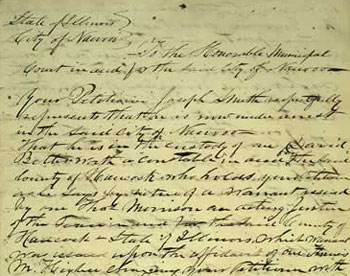 State of Illinois
City of Nauvoo
To the Honorable Municipal
Court in and for the said City of Nauvoo
Your Petitioner Joseph Smith respectfully
represents that he is now under arrest
in the said City of Nauvoo
That he is in the custody of one David
Bettesworth a Constable in and for the said
County of Hancock who holds your petitioner
by virtue of a warrant issued
by one Thos Morrison an acting Justice
of the County of
Hancock & State of Illinois which warrant
was issued upon the affidavit of one Francis
M. Higbee your petitioner with